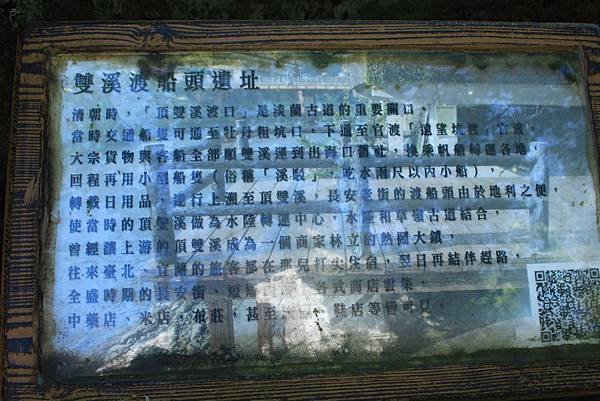 雙溪渡船頭遺址
清朝時，「頂雙溪渡口」是淡蘭古道的重要關口。
當時交通船隻可通至牡丹粗坑口，下通至官渡「遠望坑渡」官渡，
大宗貨物與客船全部順雙溪運到出海口舊社，換乘帆船歸運各地，
回程再用小型船隻（俗稱「溪駁」，吃水兩尺以內小船），
轉載日用品，逆行上溯至頂雙溪，長安老街的渡船頭由於地利之便，
使當時的頂雙溪做為水陸轉運中心，水陸和草嶺古道結合，
曾經讓上游的頂雙溪成為一個商家林立的熱鬧大鎮，
往來臺北、宜蘭的旅客都在那兒打尖住宿，翌日再結伴趕路，
全盛時期的長安街，短短 各式商店雲集，
中藥店、米店、布莊，甚至 店等皆可見，